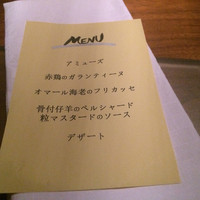 MENU
アミューズ
赤鶏のガランティーヌ
オマール海老のフリカッセ
骨付仔羊のペルシャード
粒マスタードのソース
デザート